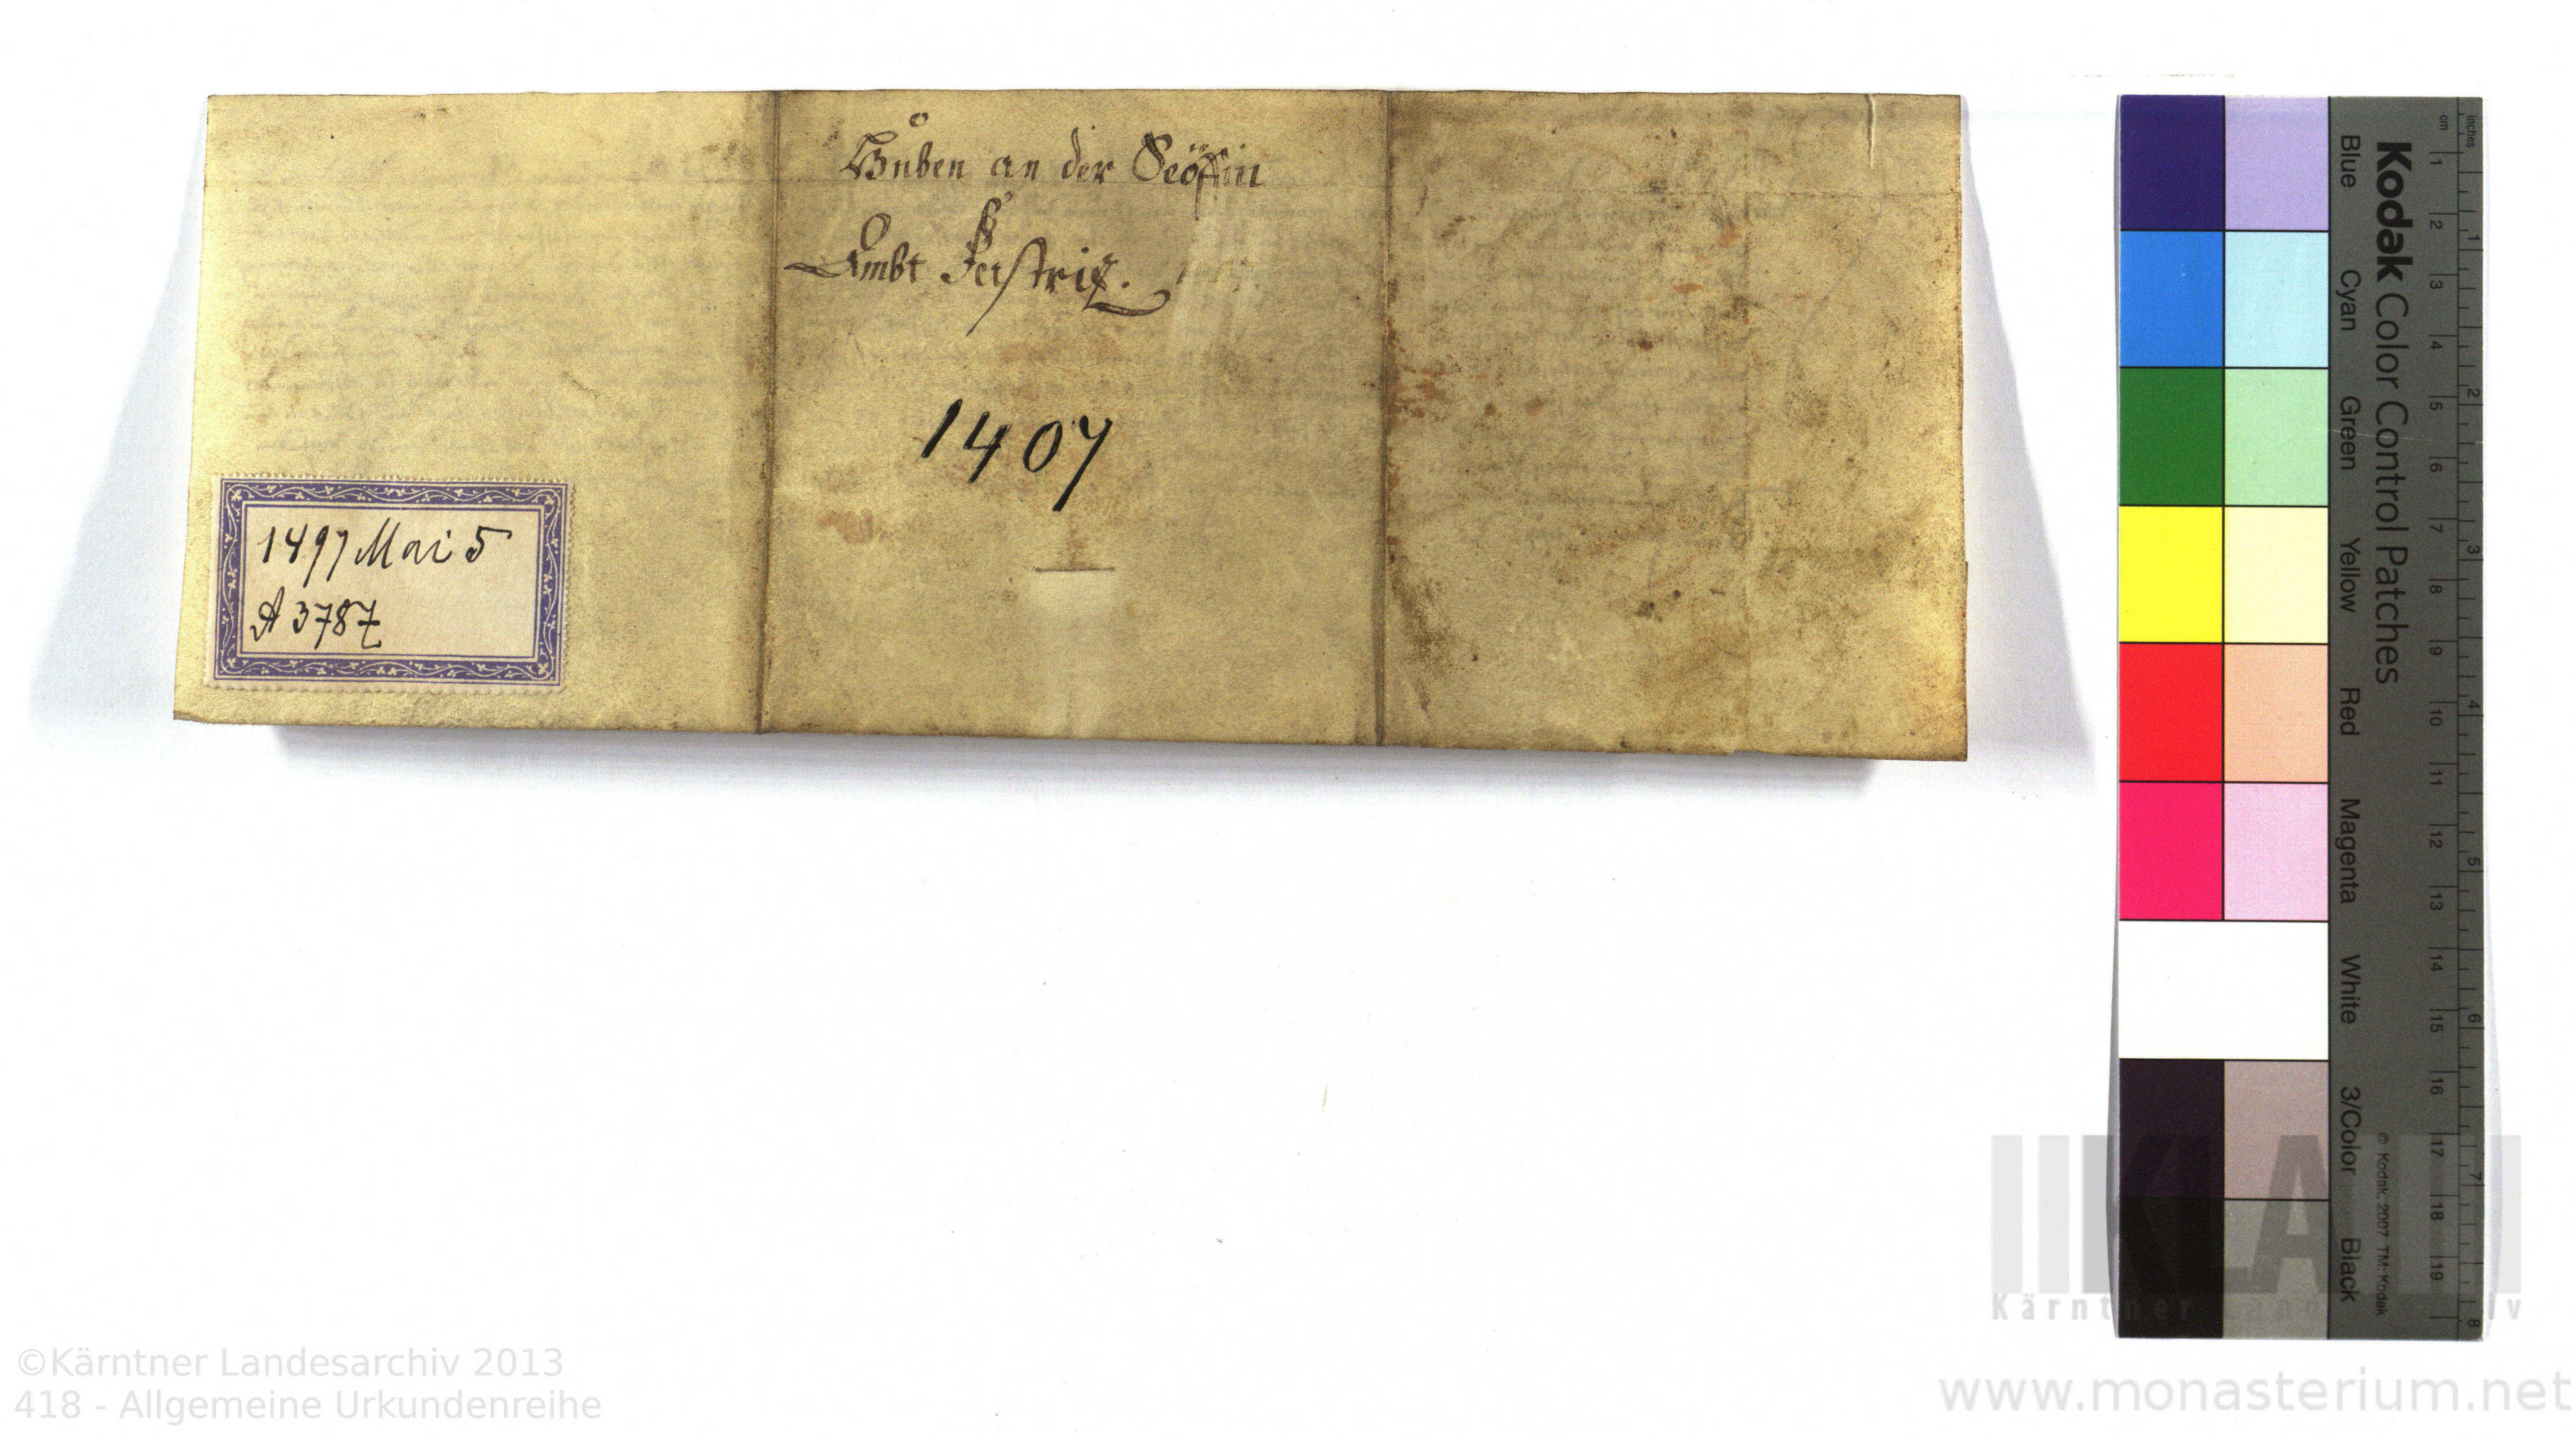 Huben an der Seöffin
Ambt Feistriz.
1407
1497 Mai 5
A 3787
Kodak Color Control Patches
Blue Cyan Green Yellow Red Magenta White 3/Color Black
© Kodak, 2007 TM: Kodak
inches
cm
1 2 3 4 5 6 7 8 9 10 11 12 13 14 15 16 17 18 19
1 2 3 4 5 6 7 8
KLA
Kärntner Landesarchiv
©Kärntner Landesarchiv 2013
418 - Allgemeine Urkundenreihe
www.monasterium.net